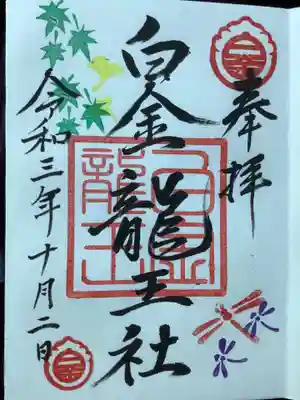 奉拝
白金龍王社
令和三年十月二日
白金
白金龍王
白金